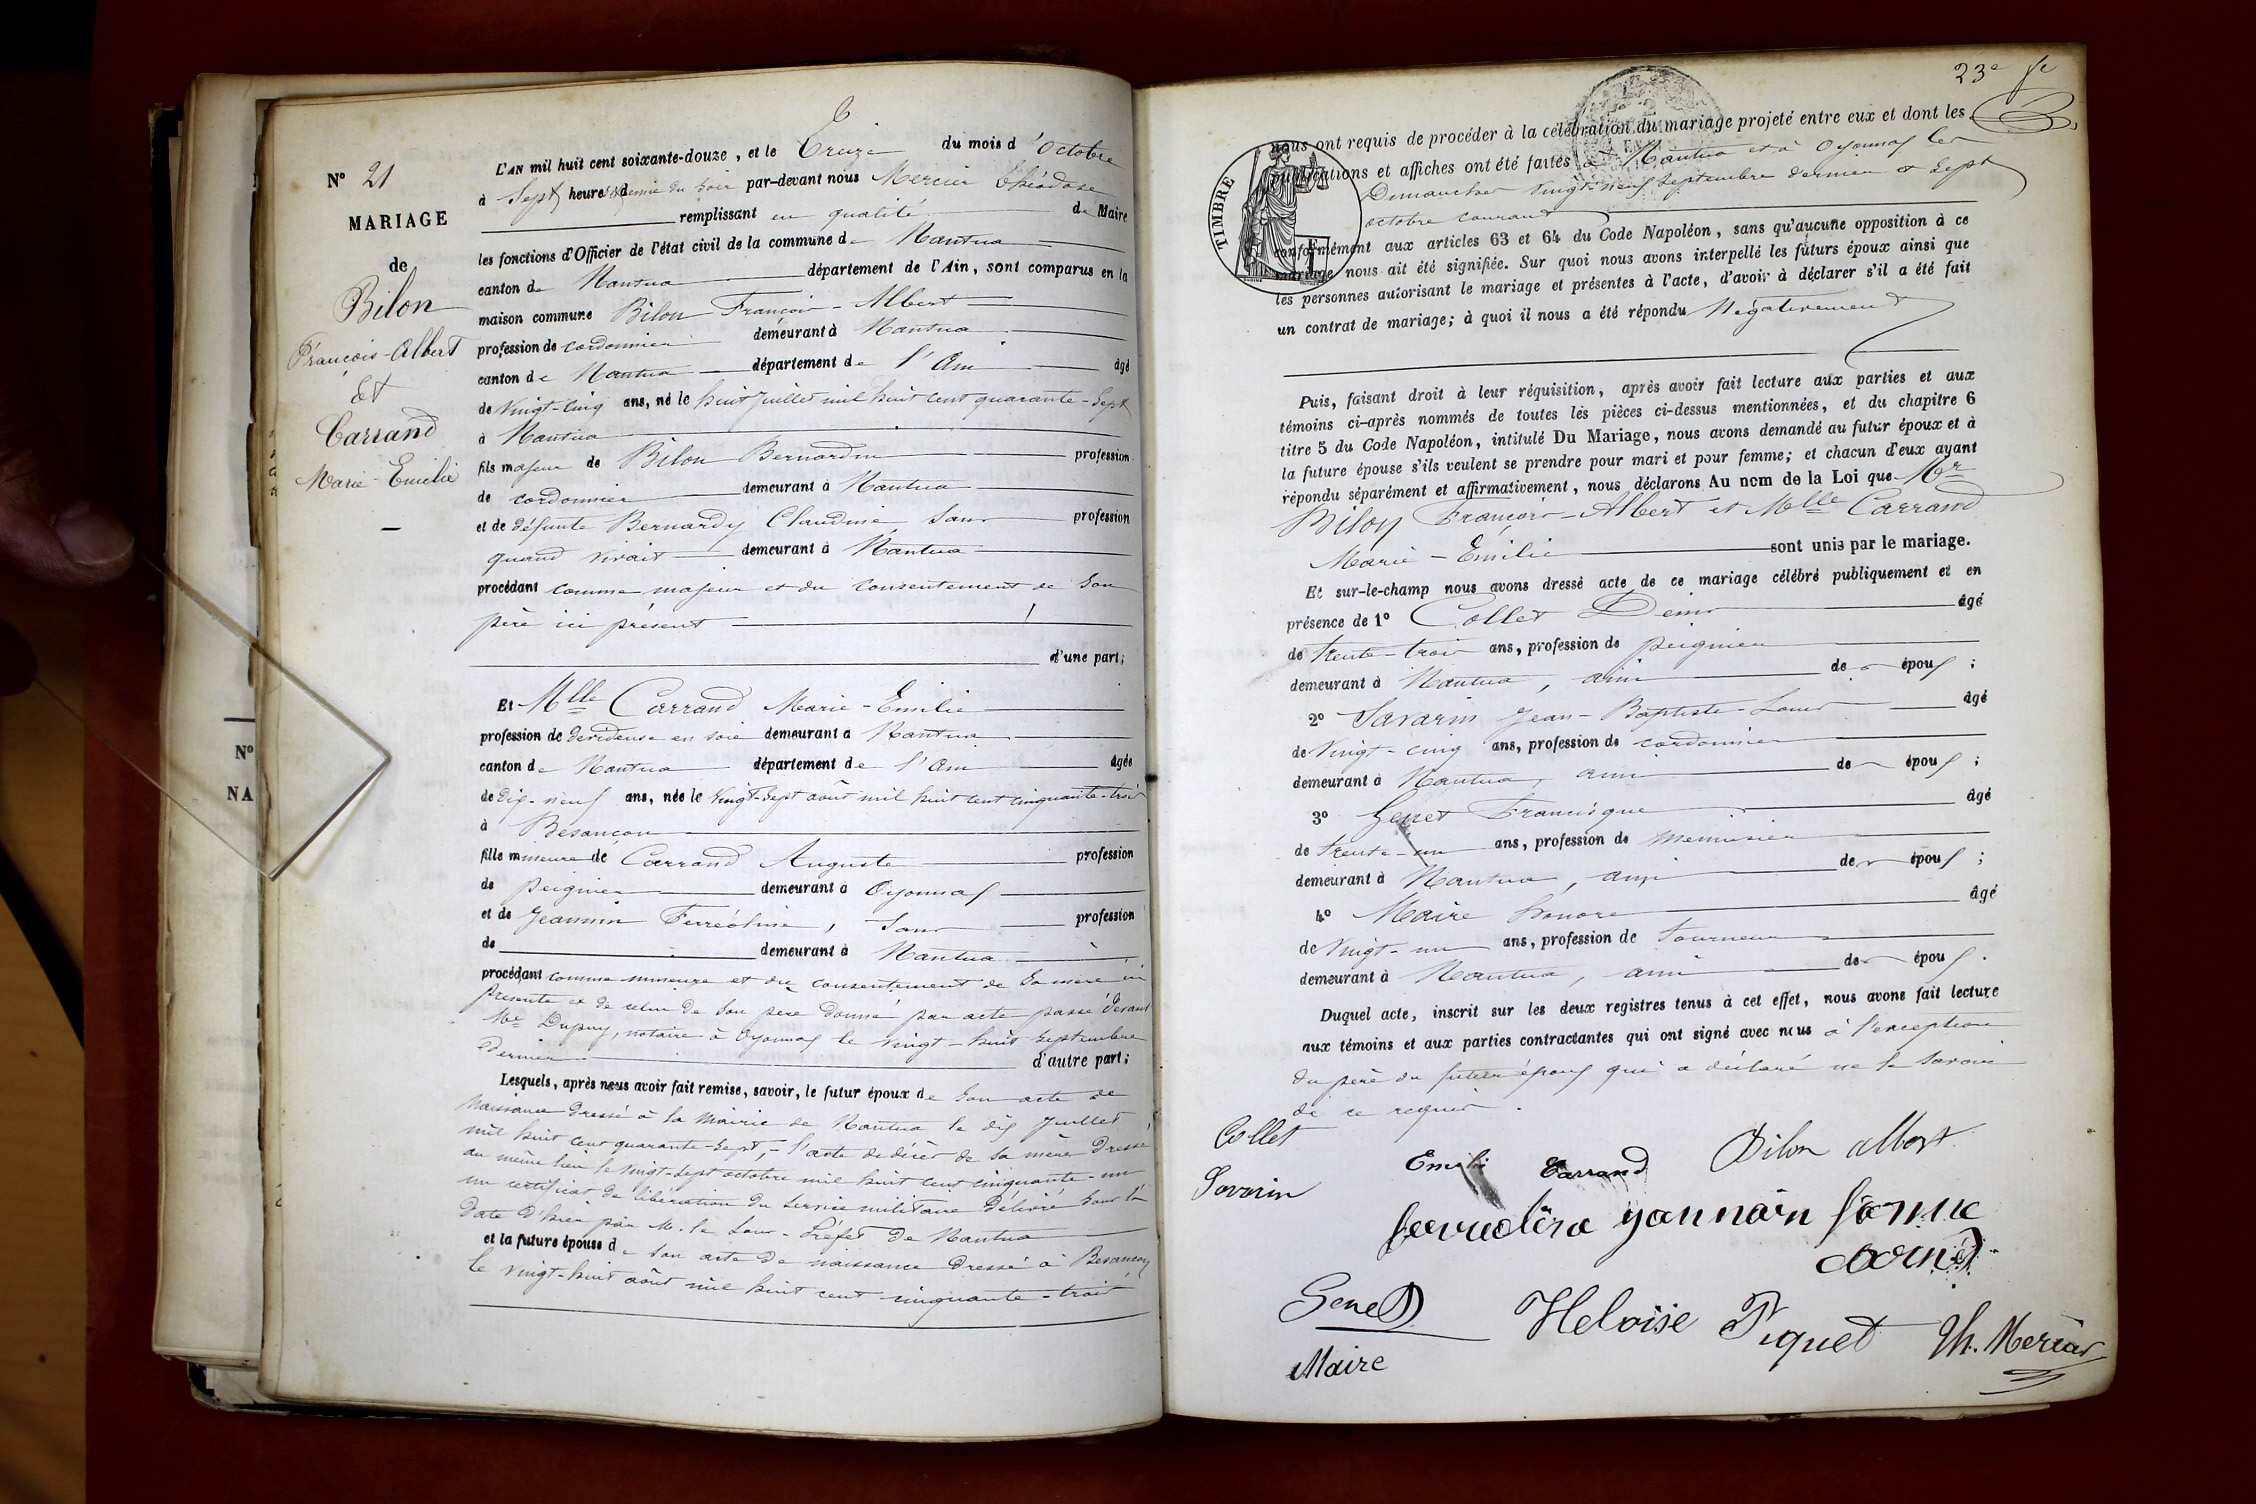 N° 21
MARIAGE
de
Bilon
François-Albert
Et
Carrand
Marie-Emilie
L'AN mil huit cent soixante-douze, et le Treize du mois d'Octobre
à Sept heures & demie du soir par-devant nous Mercier Théodose
remplissant en qualité de Maire
les fonctions d'Officier de l'état civil de la commune de Nantua
canton de Nantua département de l'Ain, sont comparus en la
maison commune Bilon François-Albert
profession de cordonnier demeurant à Nantua
canton de Nantua département de l'Ain âgé
de Vingt-cinq ans, né le huit Juillet mil huit cent quarante-sept
à Nantua
fils majeur de Bilon Bernardin profession
de cordonnier demeurant à Nantua
et de défunte Bernardy Claudine sans profession
quand vivait demeurant à Nantua
procédant comme majeur et du consentement de son
père ici présent
d'une part;
Et Mlle Carrand Marie-Emilie
profession de devideuse en soie demeurant à Nantua
canton de Nantua département de l'Ain âgée
de dix-neuf ans, née le Vingt-sept août mil huit cent cinquante-trois
à Besançon
fille mineure de Carrand Auguste profession
de peignier demeurant à Oyonnax
et de Jeannin Ferréoline, sans profession
de demeurant à Nantua
procédant comme mineure et du consentement de sa mère ici
présente et de celui de son père donné par acte passé devant
Me Dupuy, notaire à Oyonnax le vingt-huit Septembre
dernier d'autre part;
Lesquels, après nous avoir fait remise, savoir, le futur époux de son acte de
naissance dressé à la Mairie de Nantua le dix Juillet
mil huit cent quarante-sept, l'acte de décès de sa mère dressé
au même lieu le vingt-sept octobre mil huit cent cinquante-un
un certificat de libération du service militaire délivré sous la
date d'hier par M. le Sous-Préfet de Nantua
et la future épouse de son acte de naissance dressé à Besançon
le vingt-huit août mil huit cent cinquante-trois
N°
NA
23e
TIMBRE
nous ont requis de procéder à la célébration du mariage projeté entre eux et dont les
publications et affiches ont été faites à Nantua et à Oyonnax les
Dimanches vingt-neuf Septembre dernier & Sept
octobre courant
conformément aux articles 63 et 64 du Code Napoléon, sans qu'aucune opposition à ce
mariage nous ait été signifiée. Sur quoi nous avons interpellé les futurs époux ainsi que
les personnes autorisant le mariage et présentes à l'acte, d'avoir à déclarer s'il a été fait
un contrat de mariage; à quoi il nous a été répondu Négativement
Puis, faisant droit à leur réquisition, après avoir fait lecture aux parties et aux
témoins ci-après nommés de toutes les pièces ci-dessus mentionnées, et du chapitre 6
titre 5 du Code Napoléon, intitulé Du Mariage, nous avons demandé au futur époux et à
la future épouse s'ils veulent se prendre pour mari et pour femme; et chacun d'eux ayant
répondu séparément et affirmativement, nous déclarons Au nom de la Loi que Mr
Bilon François-Albert et Mlle Carrand
Marie-Emilie sont unis par le mariage.
Et sur-le-champ nous avons dressé acte de ce mariage célébré publiquement et en
présence de 1° Collet Denis âgé
de trente-trois ans, profession de peignier
demeurant à Nantua, ami de époux;
2° Savarin Jean-Baptiste-Louis âgé
de Vingt-cinq ans, profession de cordonnier
demeurant à Nantua, ami de époux;
3° Genet Francisque âgé
de trente-un ans, profession de menuisier
demeurant à Nantua, ami de époux;
4° Maire honoré âgé
de Vingt-un ans, profession de tourneur
demeurant à Nantua, ami de époux.
Duquel acte, inscrit sur les deux registres tenus à cet effet, nous avons fait lecture
aux témoins et aux parties contractantes qui ont signé avec nous à l'exception
du père du futur époux qui a déclaré ne le savoir
de ce requis.
Collet
Emilie Carrand Bilon albert
Savarin
ferreolina yannain fanne
Genet
Heloise Piquet Th. Mercier
Maire